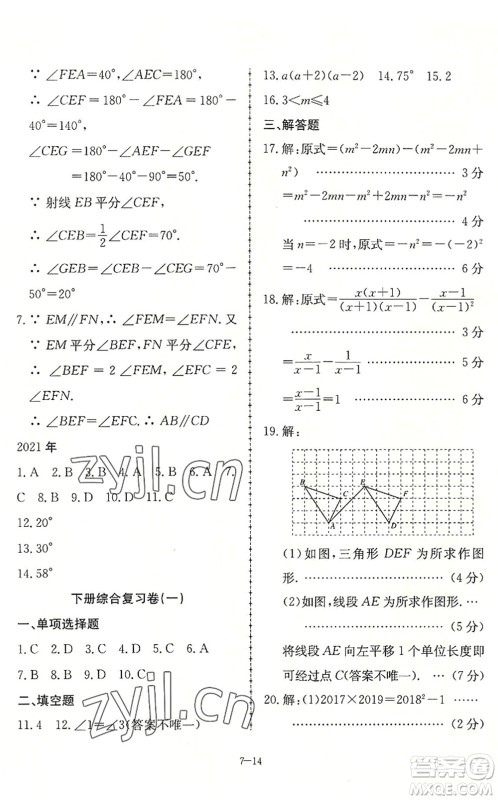 ∵ ∠FEA=40°,∠AEC=180°,
∴ ∠CEF = 180° - ∠AEF = 180° -
40°=140°,
∠CEG=180°-∠AEF-∠GEF
=180°-40°-90°=50°.
∵ 射线 EB 平分∠CEF,
∴ ∠CEB=1/2∠CEF=70°.
∴ ∠GEB=∠CEB-∠CEG=70°-
50°=20°
7. ∵ EM∥FN,∴ ∠FEM=∠EFN.又
∵ EM 平分∠BEF,FN 平分∠CFE,
∴ ∠BEF = 2 ∠FEM,∠EFC =
2∠EFN.
∴ ∠BEF=∠EFC.∴ AB∥CD
2021 年
1. A 2. B 3. B 4. A 5. B 6. A 7.
C 8. B 9. D 10. D 11. A
12.20°
13.30°
14.58°
下册综合复习卷(一)
一、单项选择题
1. C 2. B 3. A 4. D 5. C 6. B
7. B 8. D 9. C 10. A
二、填空题
11.4 12.∠1=∠3(答案不唯一)
13.a(a+2)(a-2) 14.75° 15.2
16.3<m≤4
三、解答题
17.解:原式=(m²-2mn)-(m²-2mn+
n²) ………………………… 3 分
=m²-2mn-m²+2mn-n²=-n²
………………………… 4 分
当 n=-2 时,原式=-n²=-(-2)²
=-4 ………………………… 6 分
18.解:原式=x(x+1)/(x+1)(x-1)-x-1/(x-1)²
………………………… 3 分
=x/x-1-1/x-1 ………………… 5 分
=x-1/x-1=1 ………………… 6 分
19.解:
B C A E F D
(1)如图,三角形 DEF 为所求作图
形. ………………………… (4 分)
(2)如图,线段 AE 为所求作图形.
………………………… (5 分)
将线段 AE 向左平移 1 个单位长度即
可经过点 C(答案不唯一). … (7 分)
20.解:(1)2017×2019=2018²-1 ……
………………………… (2 分)
7-14
zyjl.cn
zyjl.cn
答案圈
MXQE.COM